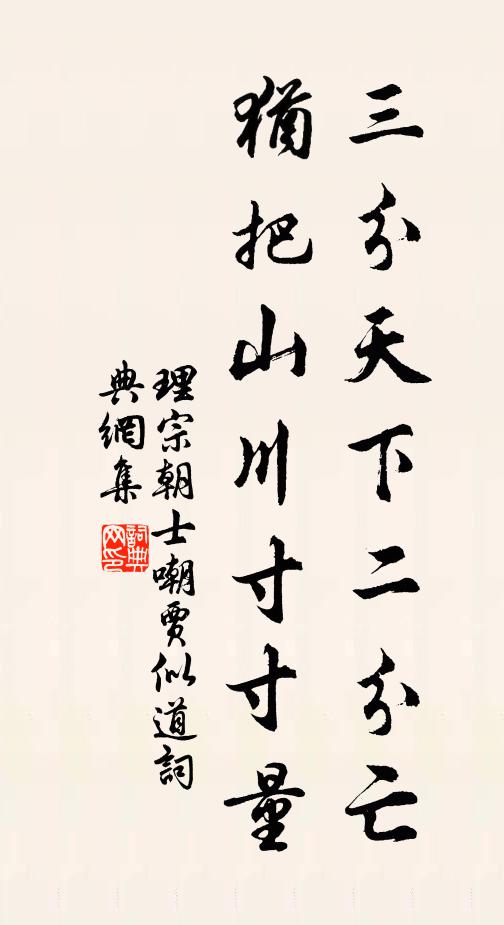 三分天下二分亡
猶把山川寸寸量
理宗朝士嘲賈似道詞
典網集
詞典網印